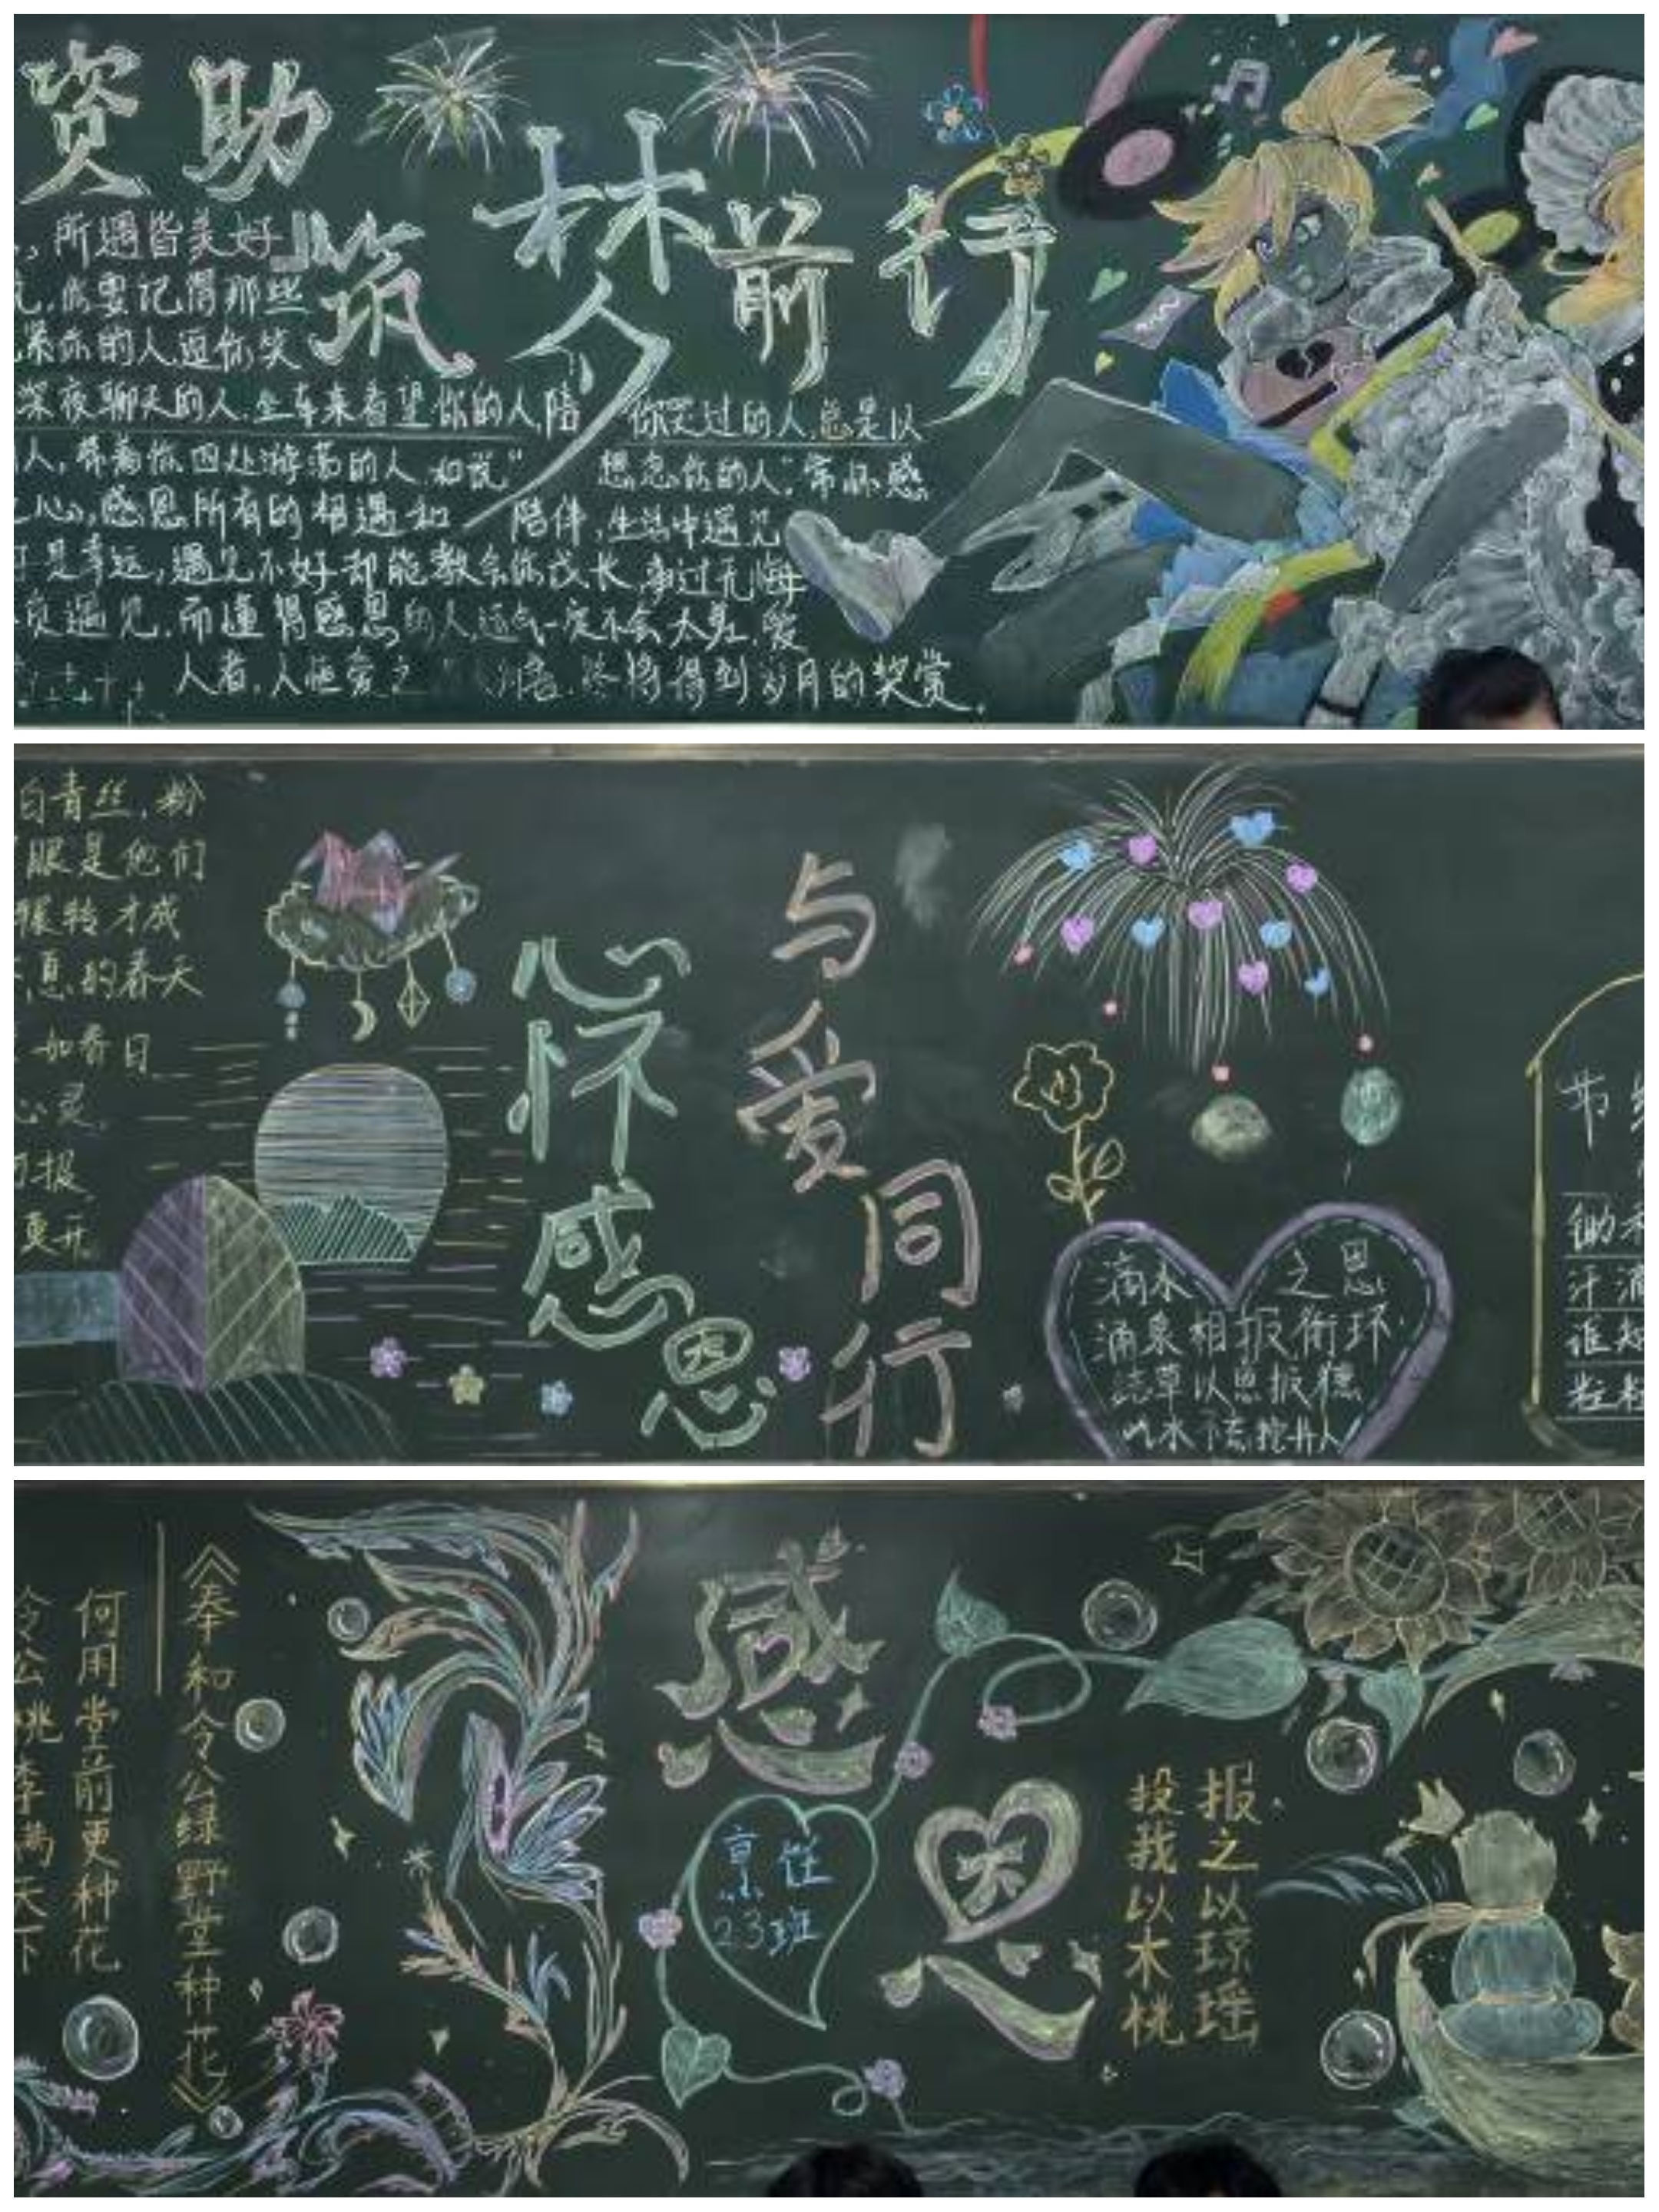 资助
筑梦前行
，所遇皆美好
，你要记得那些
你的人，逗你笑
深夜聊天的人，坐车来看望你的人，陪你哭过的人，总是以
人，带着你四处游荡的人，如说“想念你的人”。常怀感
心，感恩所有的相遇和陪伴，生活中遇见
是幸运，遇见不好却能教会你成长，
遇见，而懂得感恩的人运气一定不会太差，爱
人者，人恒爱之
终将得到岁月的奖赏。
白青丝，粉
眼是他们
辗转才成
息的春天
如春日
心灵
报
更开
心怀感恩
与爱同行
滴水之恩
涌泉相报衔环
结草以恩报德
吃水不忘挖井人
节
锄禾
汗滴
谁知
粒粒
《奉和令公绿野堂种花》
何用堂前更种花
令公桃李满天下
感恩
烹饪
23班
投我以木桃
报之以琼瑶